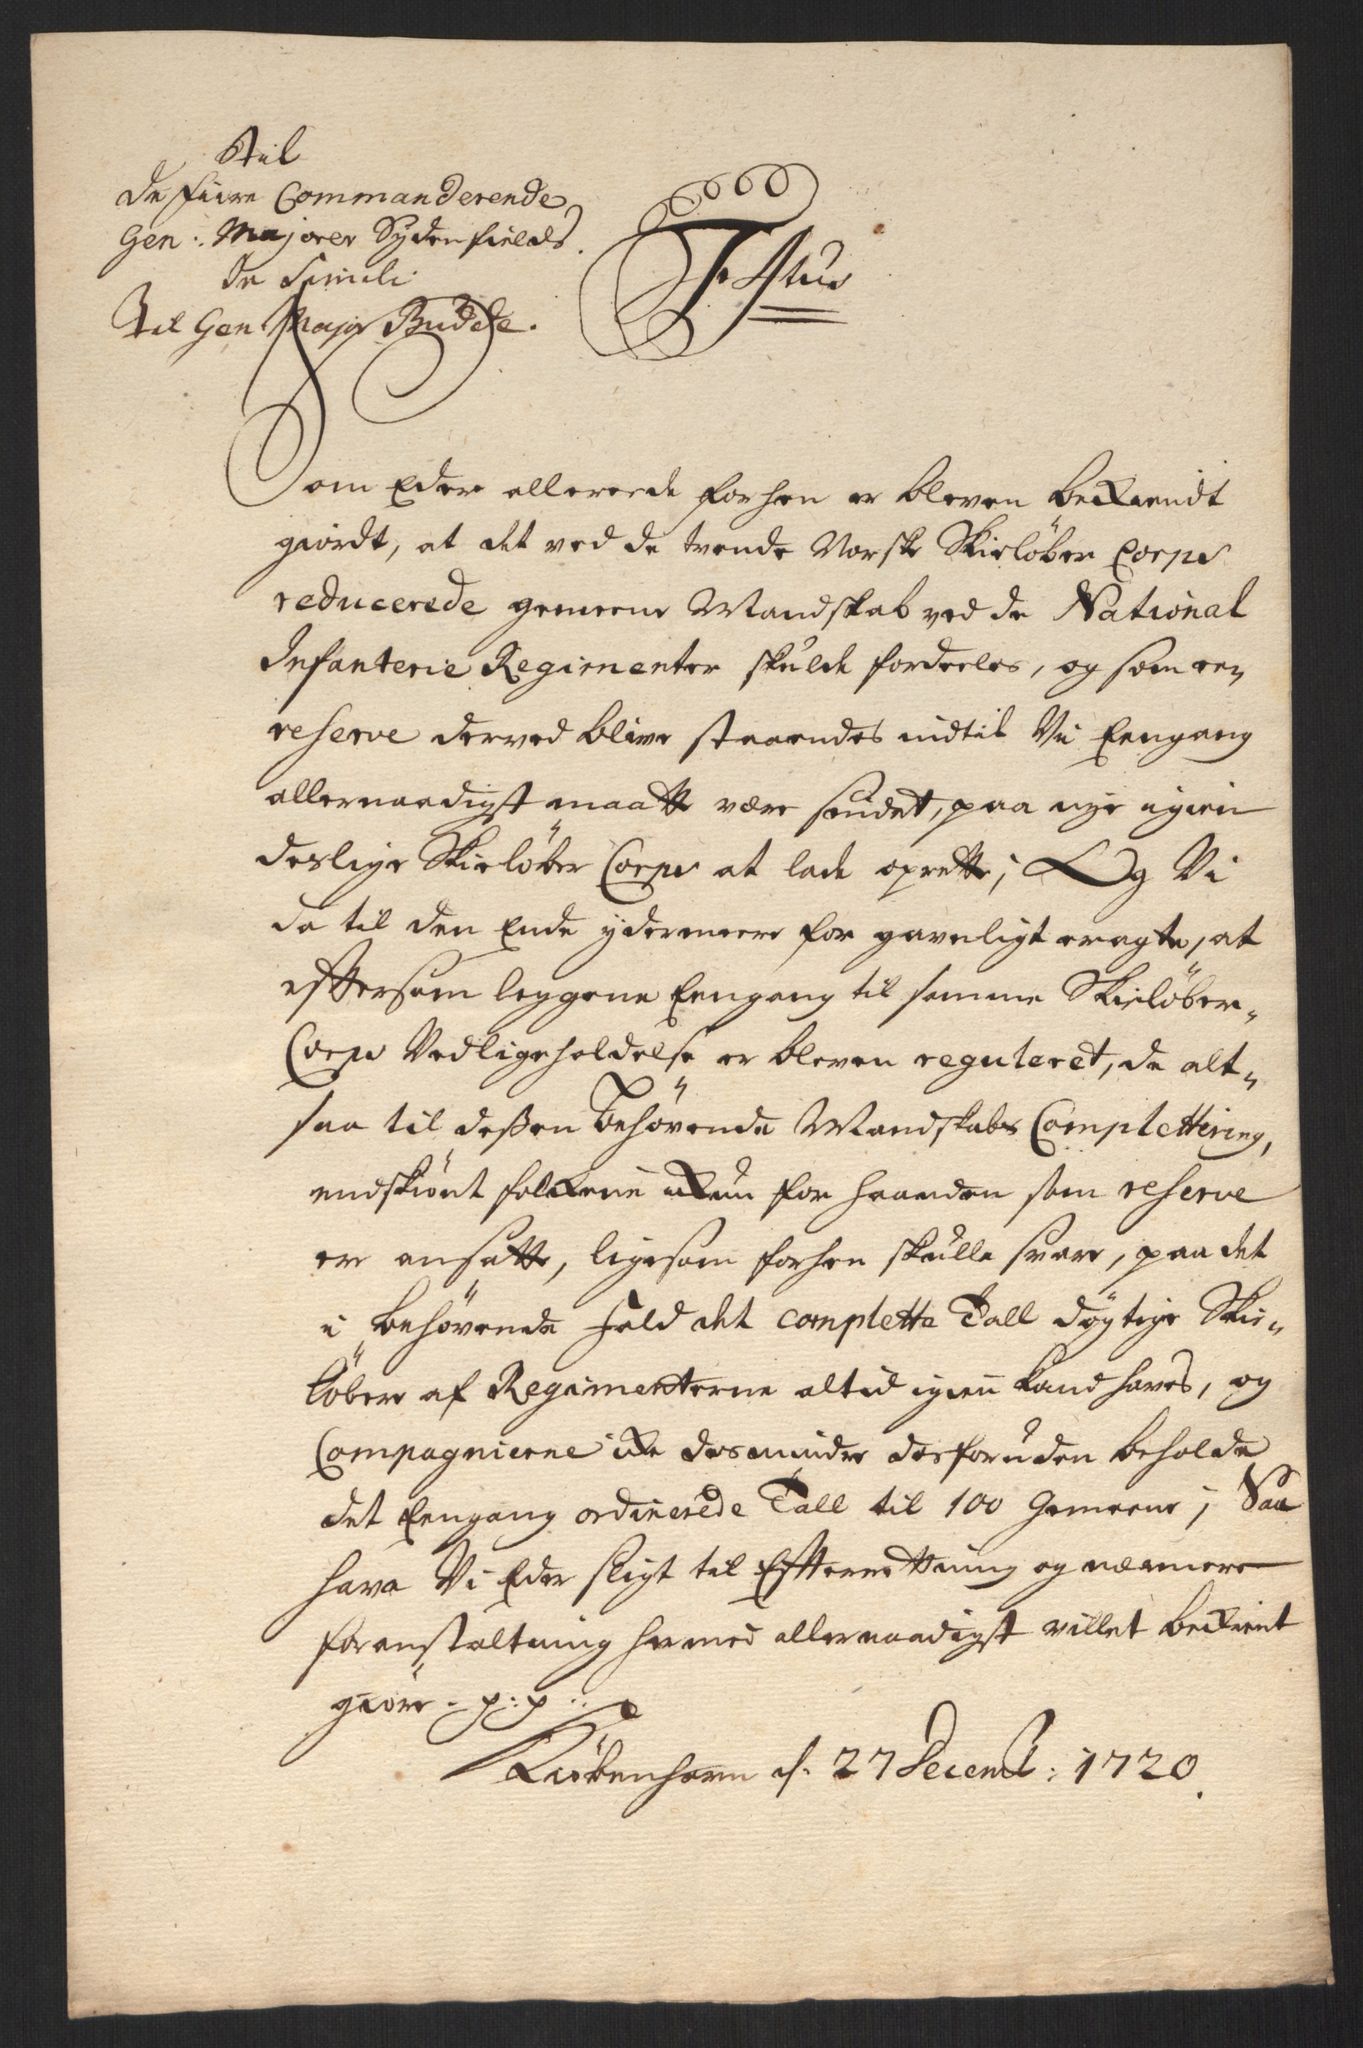 Til
de fiire Commanderende
Gen: Majorer Sydenfields.
De Simili
Til Gen Major Budde.
F 4tus
Som Eder allereede forhen er bleven bekiendt
giordt, at det ved de trende Norske Skieløber Corps
reducerede gemeene Mandskab ved de National
Infanterie Regimenter skulde fordeeles, og som een
reserve derved blive staaendes indtil Vi Eengang
allernaadigst maatte være sindet, paa nye igien
deslige Skieløber Corps at lade oprette; Og Vi
da til den Ende ydermeere for gavnligt eragte, at
eftersom leggene Eengang til samme Skieløber„
Corps Vedligeholdelse er bleven reguleret, de alt„
saa til deßen behøvende Mandskabs Complettering,
endskiønt folkene ikkun for haanden som reserve
er ansatte, ligesom forhen skulle svare, paa det
i behøvende fald det complette Tall døgtige Skie„
løbere af Regimenterne altid igien kand haves, og
Compagnierne icke desmindre desforuden beholde
det Eengang ordinerede Tall til 100 Gemeene; Saa
have Vi Eder sligt til Efterretning og nærmere
foranstaltning hermed allernaadigst villet bekient
giøre - p: p:
Kiøbenhavn d. 27 Decemb: 1720.